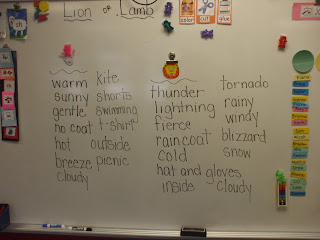 Lion or Lamb
color
cut
glue
sh
warm kite
sunny shorts
gentle swimming
no coat t-shirt
hot outside
breeze picnic
cloudy
thunder
lightning
fierce
raincoat
cold
hat and gloves
inside cloudy
tornado
rainy
windy
blizzard
snow